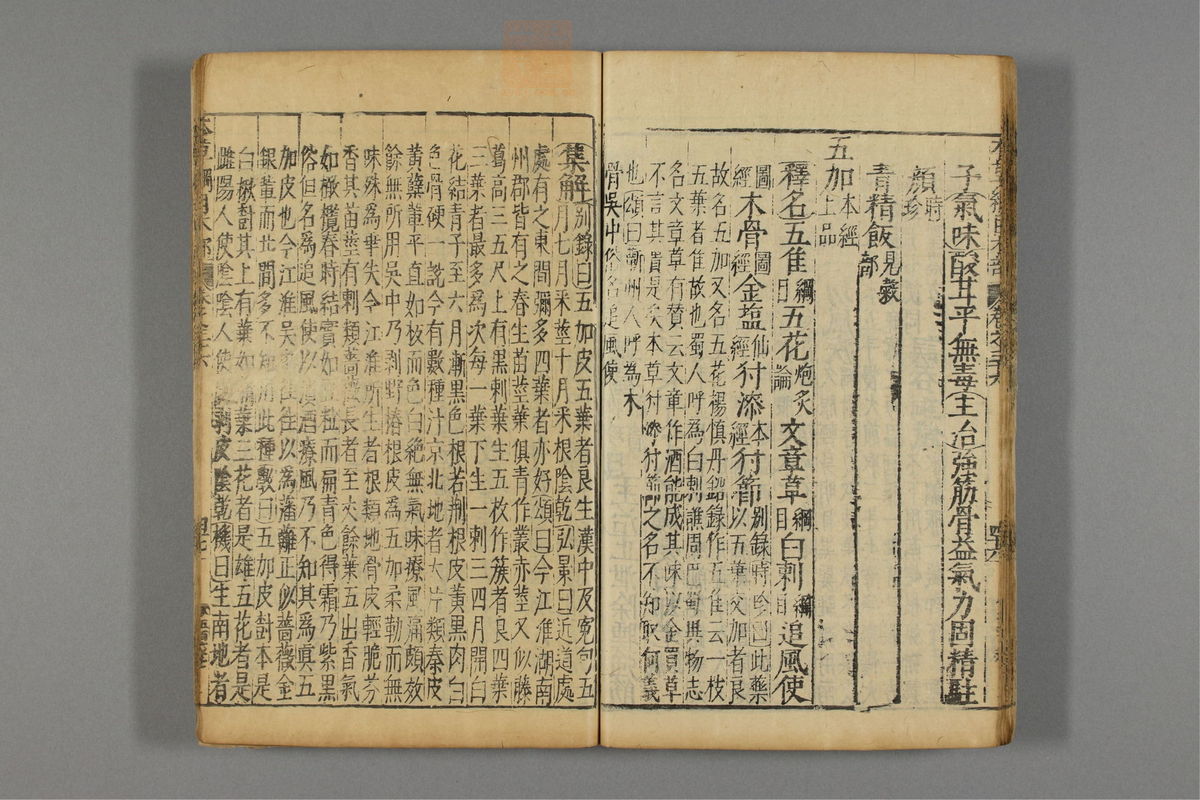 子氣味酸甘平無毒主治強筋骨益氣力固精駐
顏時珍
青精飯見穀部
五加本經上品
釋名五隹綱目五花炮炙論文章草綱目白刺綱目追風使
圖經木骨圖經金鹽仙經犲漆本經犲節別錄時珍曰此藥以五葉交加者良
故名五加又名五花楊慎丹鉛錄作五隹云一枝
五葉者隹故也蜀人呼為白刺譙周巴蜀異物志
名文章草有贊云文章作酒能成其味以金買草
不言其貴是矣本草犲漆犲節之名不知取何義
也頌曰蘄州人呼為木
骨吳中俗名追風使
集解別錄曰五加皮五葉者良生漢中及冤句五
月七月采莖十月采根陰乾弘景曰近道處
處有之東間彌多四葉者亦好頌曰今江淮湖南
州郡皆有之春生苗莖葉俱青作叢赤莖又似藤
葛高三五尺上有黑刺葉生五枚作簇者良四葉
三葉者最多為次每一葉下生一刺三四月開白
花結青子至六月漸黑色根若荆根皮黃黑肉白
色骨硬一說今有數種汴京北地者大片類秦皮
黃蘗輩平直如板而色白絶無氣味療風痛頗效
餘無所用吳中乃剥野椿根皮為五加柔勒而無
味殊為乖失今江淮所生者根類地骨皮輕脆芬
香其苗莖有刺類薔薇長者至丈餘葉五出香氣
如橄欖春時結實如豆粒而扁青色得霜乃紫黑
俗但名為追風使以漬酒療風乃不知其為真五
加皮也今江淮吳中往往以為藩籬正似薔薇金
銀輩而北間多不知用此種斆曰五加皮樹本是
白楸樹其上有葉如蒲葉三花者是雄五花者是
雌陽人使陰陰人使陽剥皮陰乾機曰生南地者